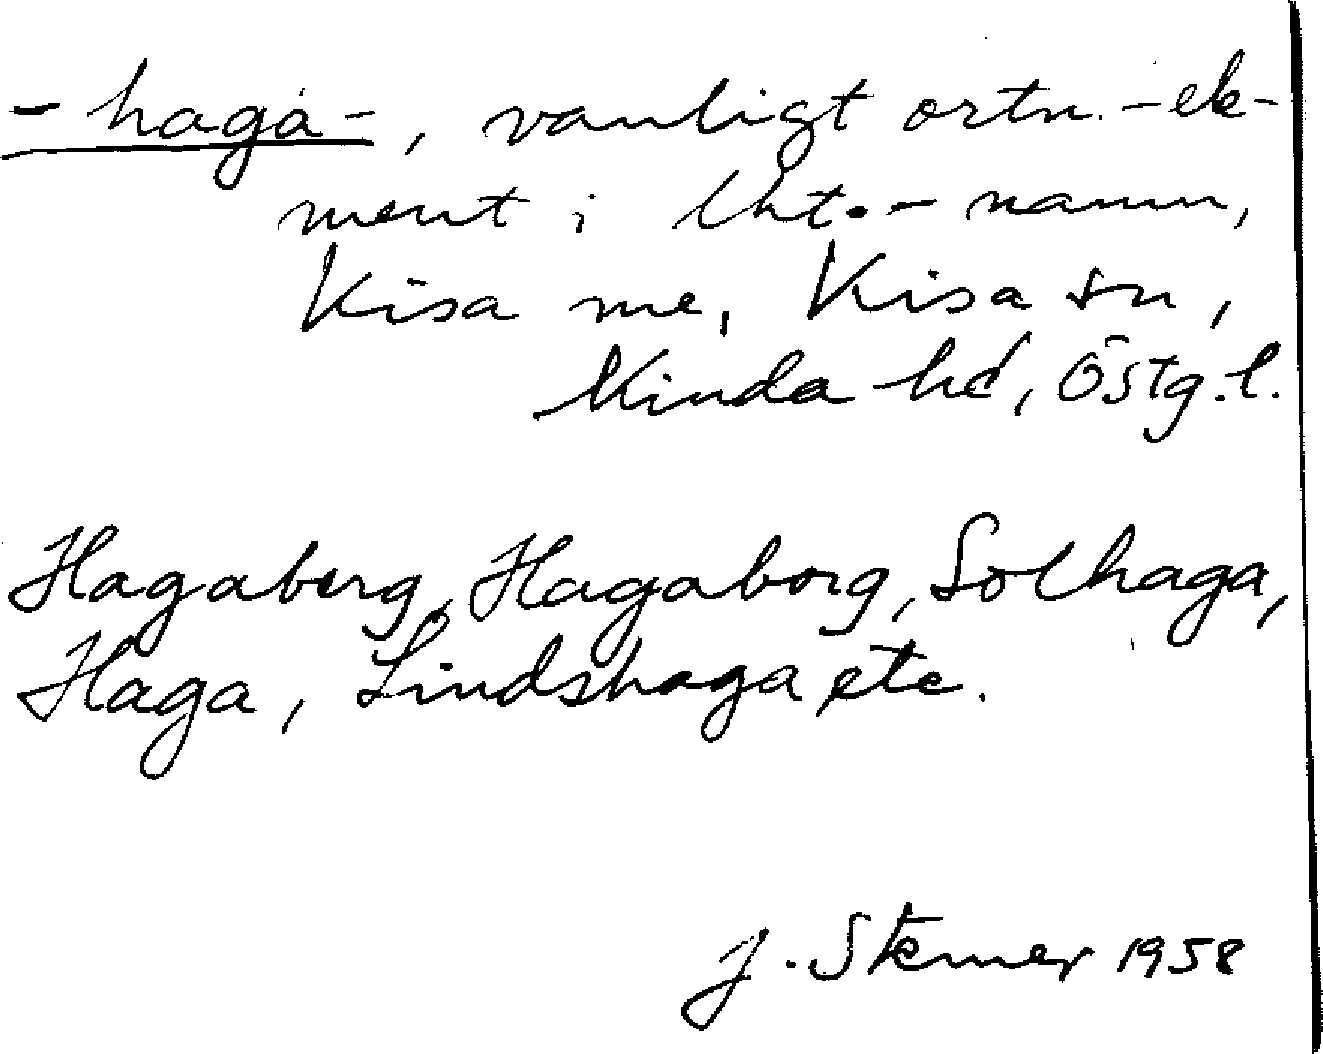 -haga-, vanligt ortn.-ele-
ment i lht.-namn,
Kisa me, Kisa sn,
Kinda hd, Östg.l.
Hagaberg, Hagaborg, Solhaga,
Haga, Lindshaga etc.
J. Stemer 1958